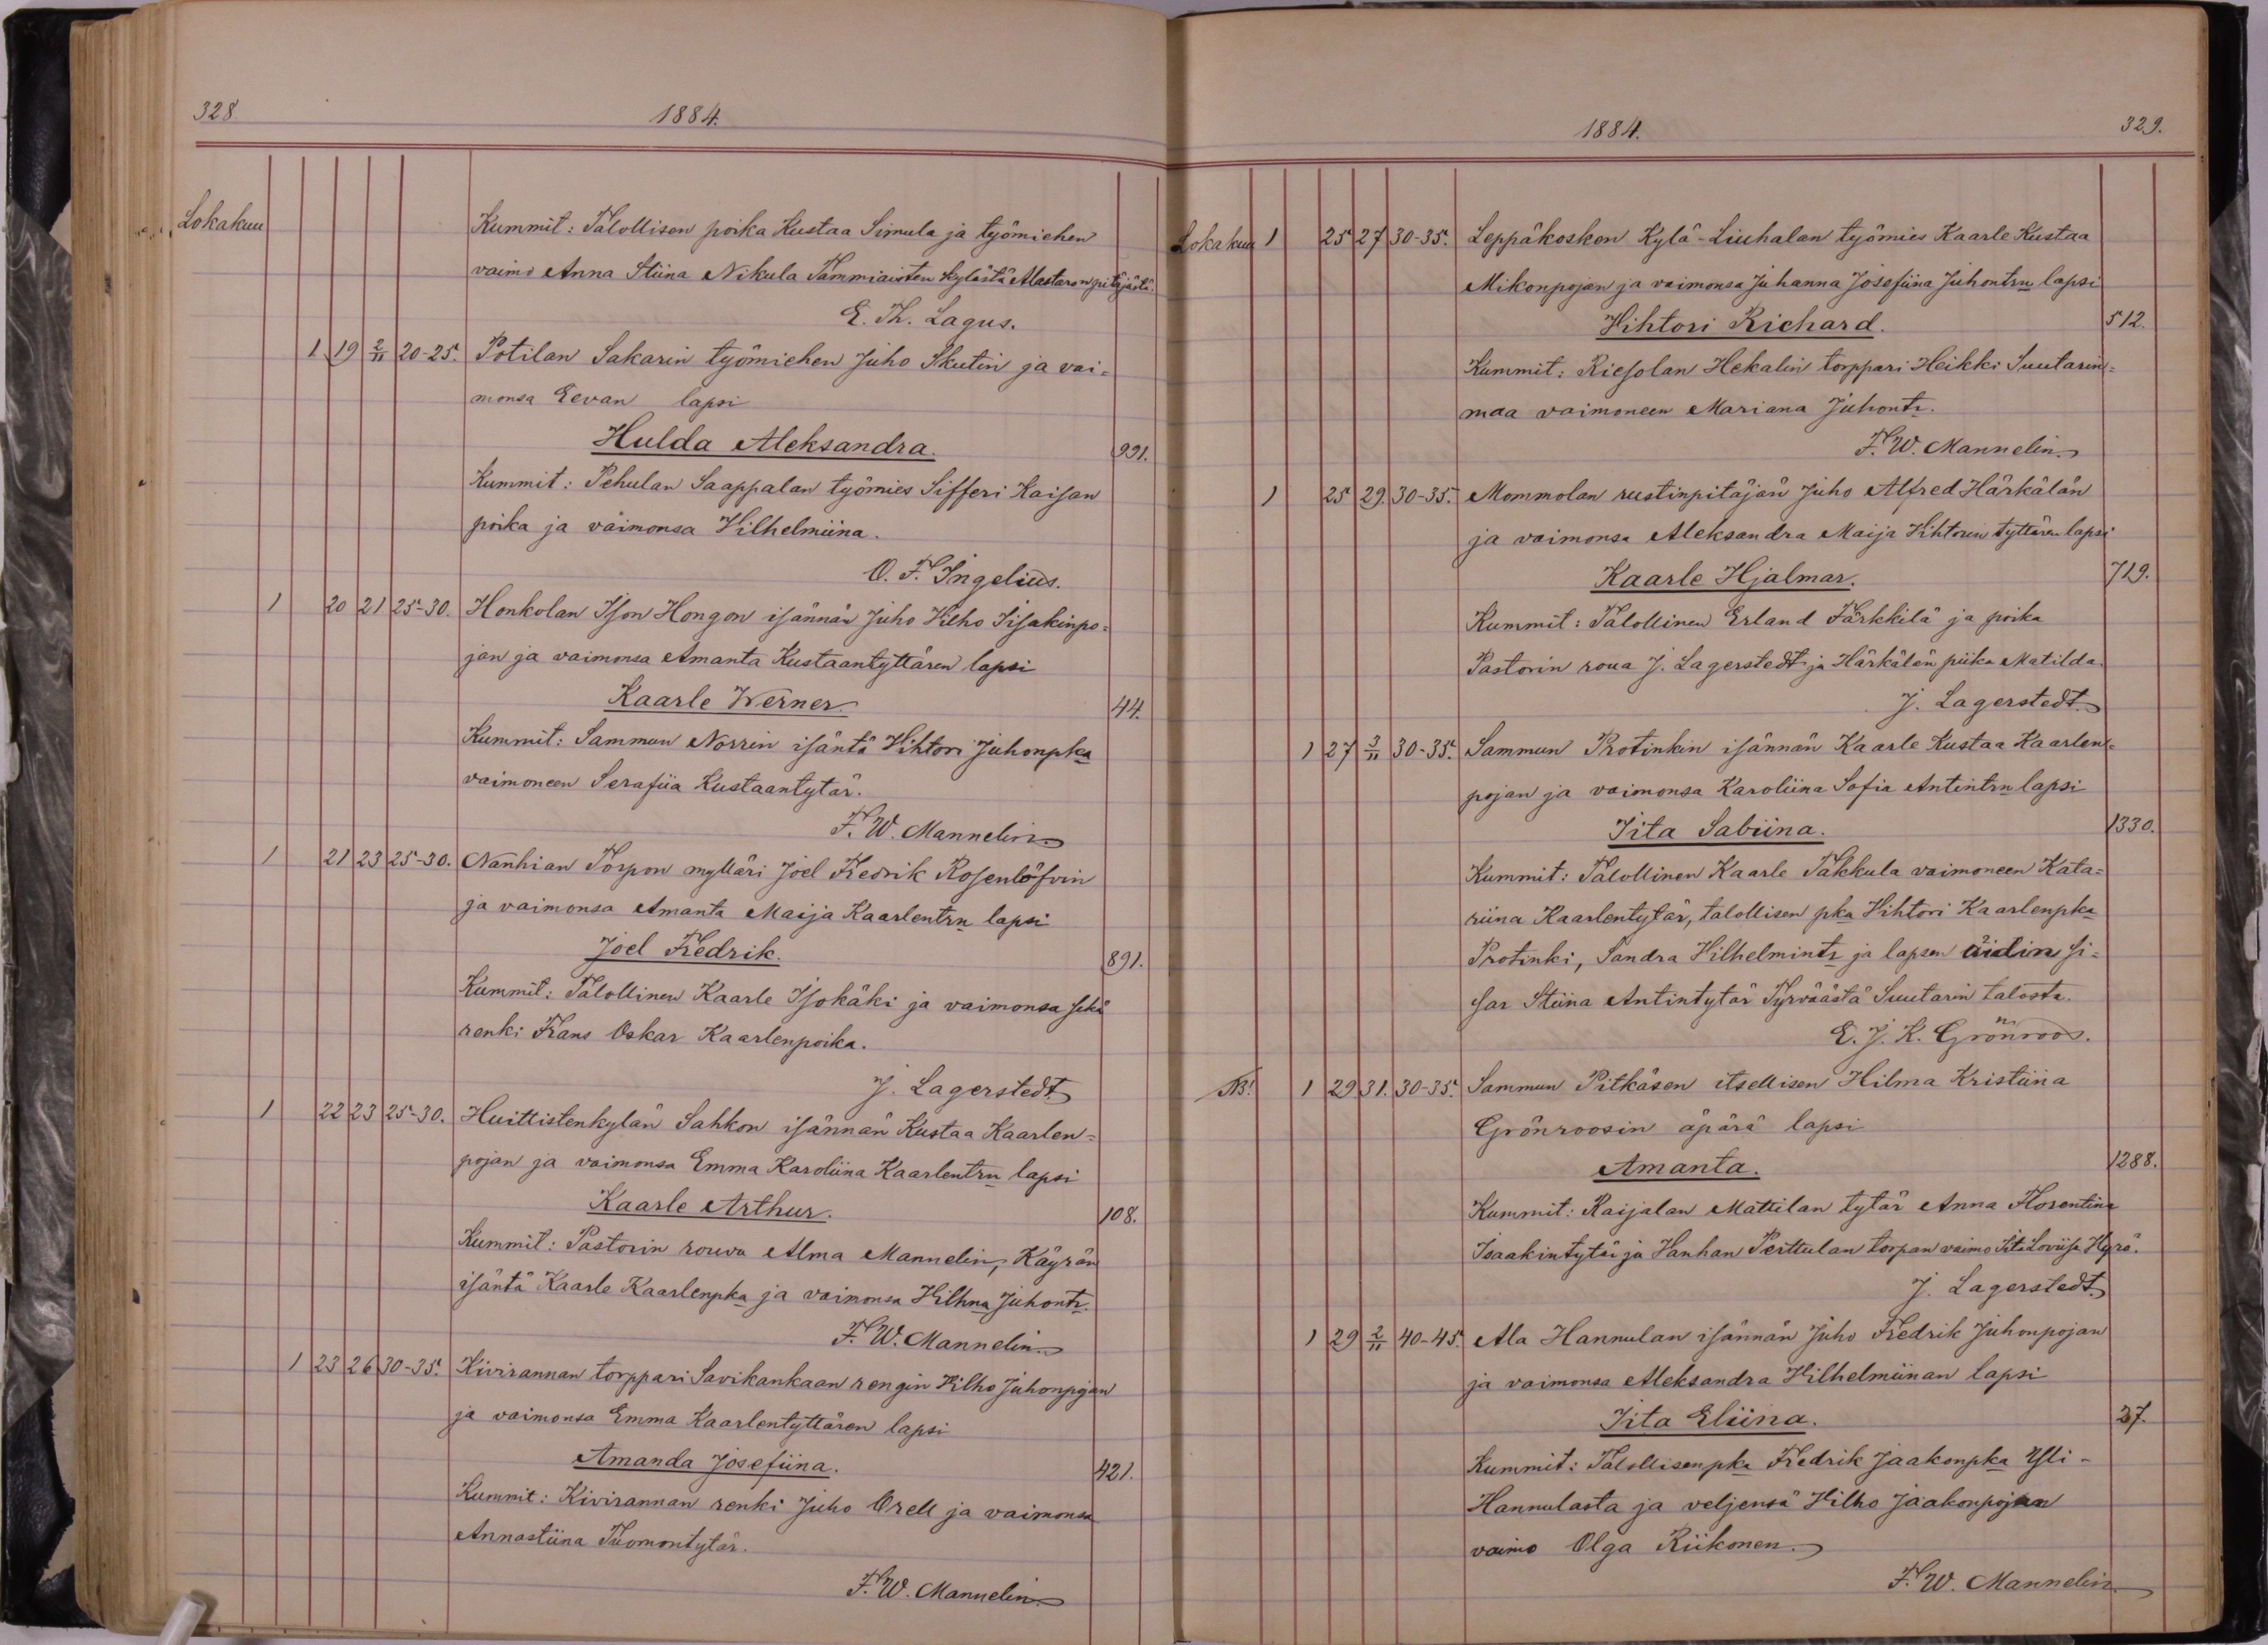 328.
1884.
Lokakuu
Kummit: Talollisen poika Kustaa Simula ja työmiehen
vaimo Anna Stiina Nikula Tammiaisten kylästä Alastaron pitäjästä.
E. Th. Lagus.
1 19 2/11 20-25. Potilan Sakarin työmiehen Juho Skutin ja vai=
monsa Eevan lapsi
Hulda Aleksandra. 991.
Kummit: Pehulan Saappalan työmies Sifferi Kaisan
poika ja vaimonsa Vilhelmiina.
O. F. Ingelius.
1 20 21 25-30. Honkolan Ison Hongon isännän Juho Vilho Iisakinpo=
jan ja vaimonsa Amanta Kustaantyttären lapsi
Kaarle Werner. 44.
Kummit: Sammun Norrin isäntä Vihtori Juhonpka
vaimoneen Serafiia Kustaantytär.
F. W. Mannelin.
1 21 23 25-30. Nanhian Torpon mylläri Joel Fredrik Rosenlöfvin
ja vaimonsa Amanta Maija Kaarlentrn lapsi
Joel Fredrik. 891.
Kummit: Talollinen Kaarle Isokäki ja vaimonsa sekä
renki Frans Oskar Kaarlenpoika.
J. Lagerstedt
1 22 23 25-30. Huittistenkylän Sahkon isännän Kustaa Kaarlen=
pojan ja vaimonsa Emma Karoliina Kaarlentrn lapsi
Kaarle Arthur. 108.
Kummit: Pastorin rouva Alma Mannelin, Käyrän
isäntä Kaarle Kaarlenpka ja vaimonsa Vilhna Juhontr.
F. W. Mannelin.
1 23 26 30-35. Kivirannan torppari Savikankaan rengin Vilho Juhonpojan
ja vaimonsa Emma Kaarlentyttären lapsi
Amanda Josefiina. 421.
Kummit: Kivirannan renki Juho Orell ja vaimonsa
Annastiina Tuomontytär.
F. W. Mannelin.
1884.
329.
Lokakuu 1 25 27 30-35. Leppäkosken Kylä-Liuhalan työmies Kaarle Kustaa
Mikonpojan ja vaimonsa Juhanna Josefiina Juhontrn lapsi
Vihtori Richard. 512.
Kummit: Riesolan Hekalin torppari Heikki Suutarin=
maa vaimoneen Mariana Juhontr.
F. W. Mannelin.
1 25 29. 30-35. Mommolan rustinpitäjän Juho Alfred Härkälän
ja vaimonsa Aleksandra Maija Vihtorin tyttären lapsi
Kaarle Hjalmar. 719.
Kummit: Talollinen Erland Färkkilä ja poika
Pastorin roua J. Lagerstedt ja Härkälän piika Matilda.
J. Lagerstedt.
1 27 3/11 30-35. Sammun Protinkin isännän Kaarle Kustaa Kaarlen=
pojan ja vaimonsa Karoliina Sofia Antintrn lapsi
Iita Sabiina. 1330.
Kummit: Talollinen Kaarle Takkula vaimoneen Kata=
riina Kaarlentytär, talollisen pka Vihtori Kaarlenpka
Protinki, Sandra Vilhelmintr ja lapsen äidin si=
sar Stiina Antintytär Tyrväästä Suutarin talosta.
E. J. K. Grönroos.
NB! 1 29 31. 30-35. Sammun Pitkäsen itsellisen Hilma Kristiina
Grönroosin äpärä lapsi
Amanta. 1288.
Kummit: Raijalan Mattilan tytär Anna Florentina
Isaakintytär ja Hanhan Perttulan torpan vaimo Iita Loviisa Hyrö.
J. Lagerstedt.
1 29 2/11 40-45. Ala Hannulan isännän Juho Fredrik Juhonpojan
ja vaimonsa Aleksandra Vilhelmiinan lapsi
Iita Eliina. 37.
Kummit: Talollisenpka Fredrik Jaakonpka Yli-
Hannulasta ja veljensä Vilho Jaakonpojan
vaimo Olga Riikonen.
F. W. Mannelin.